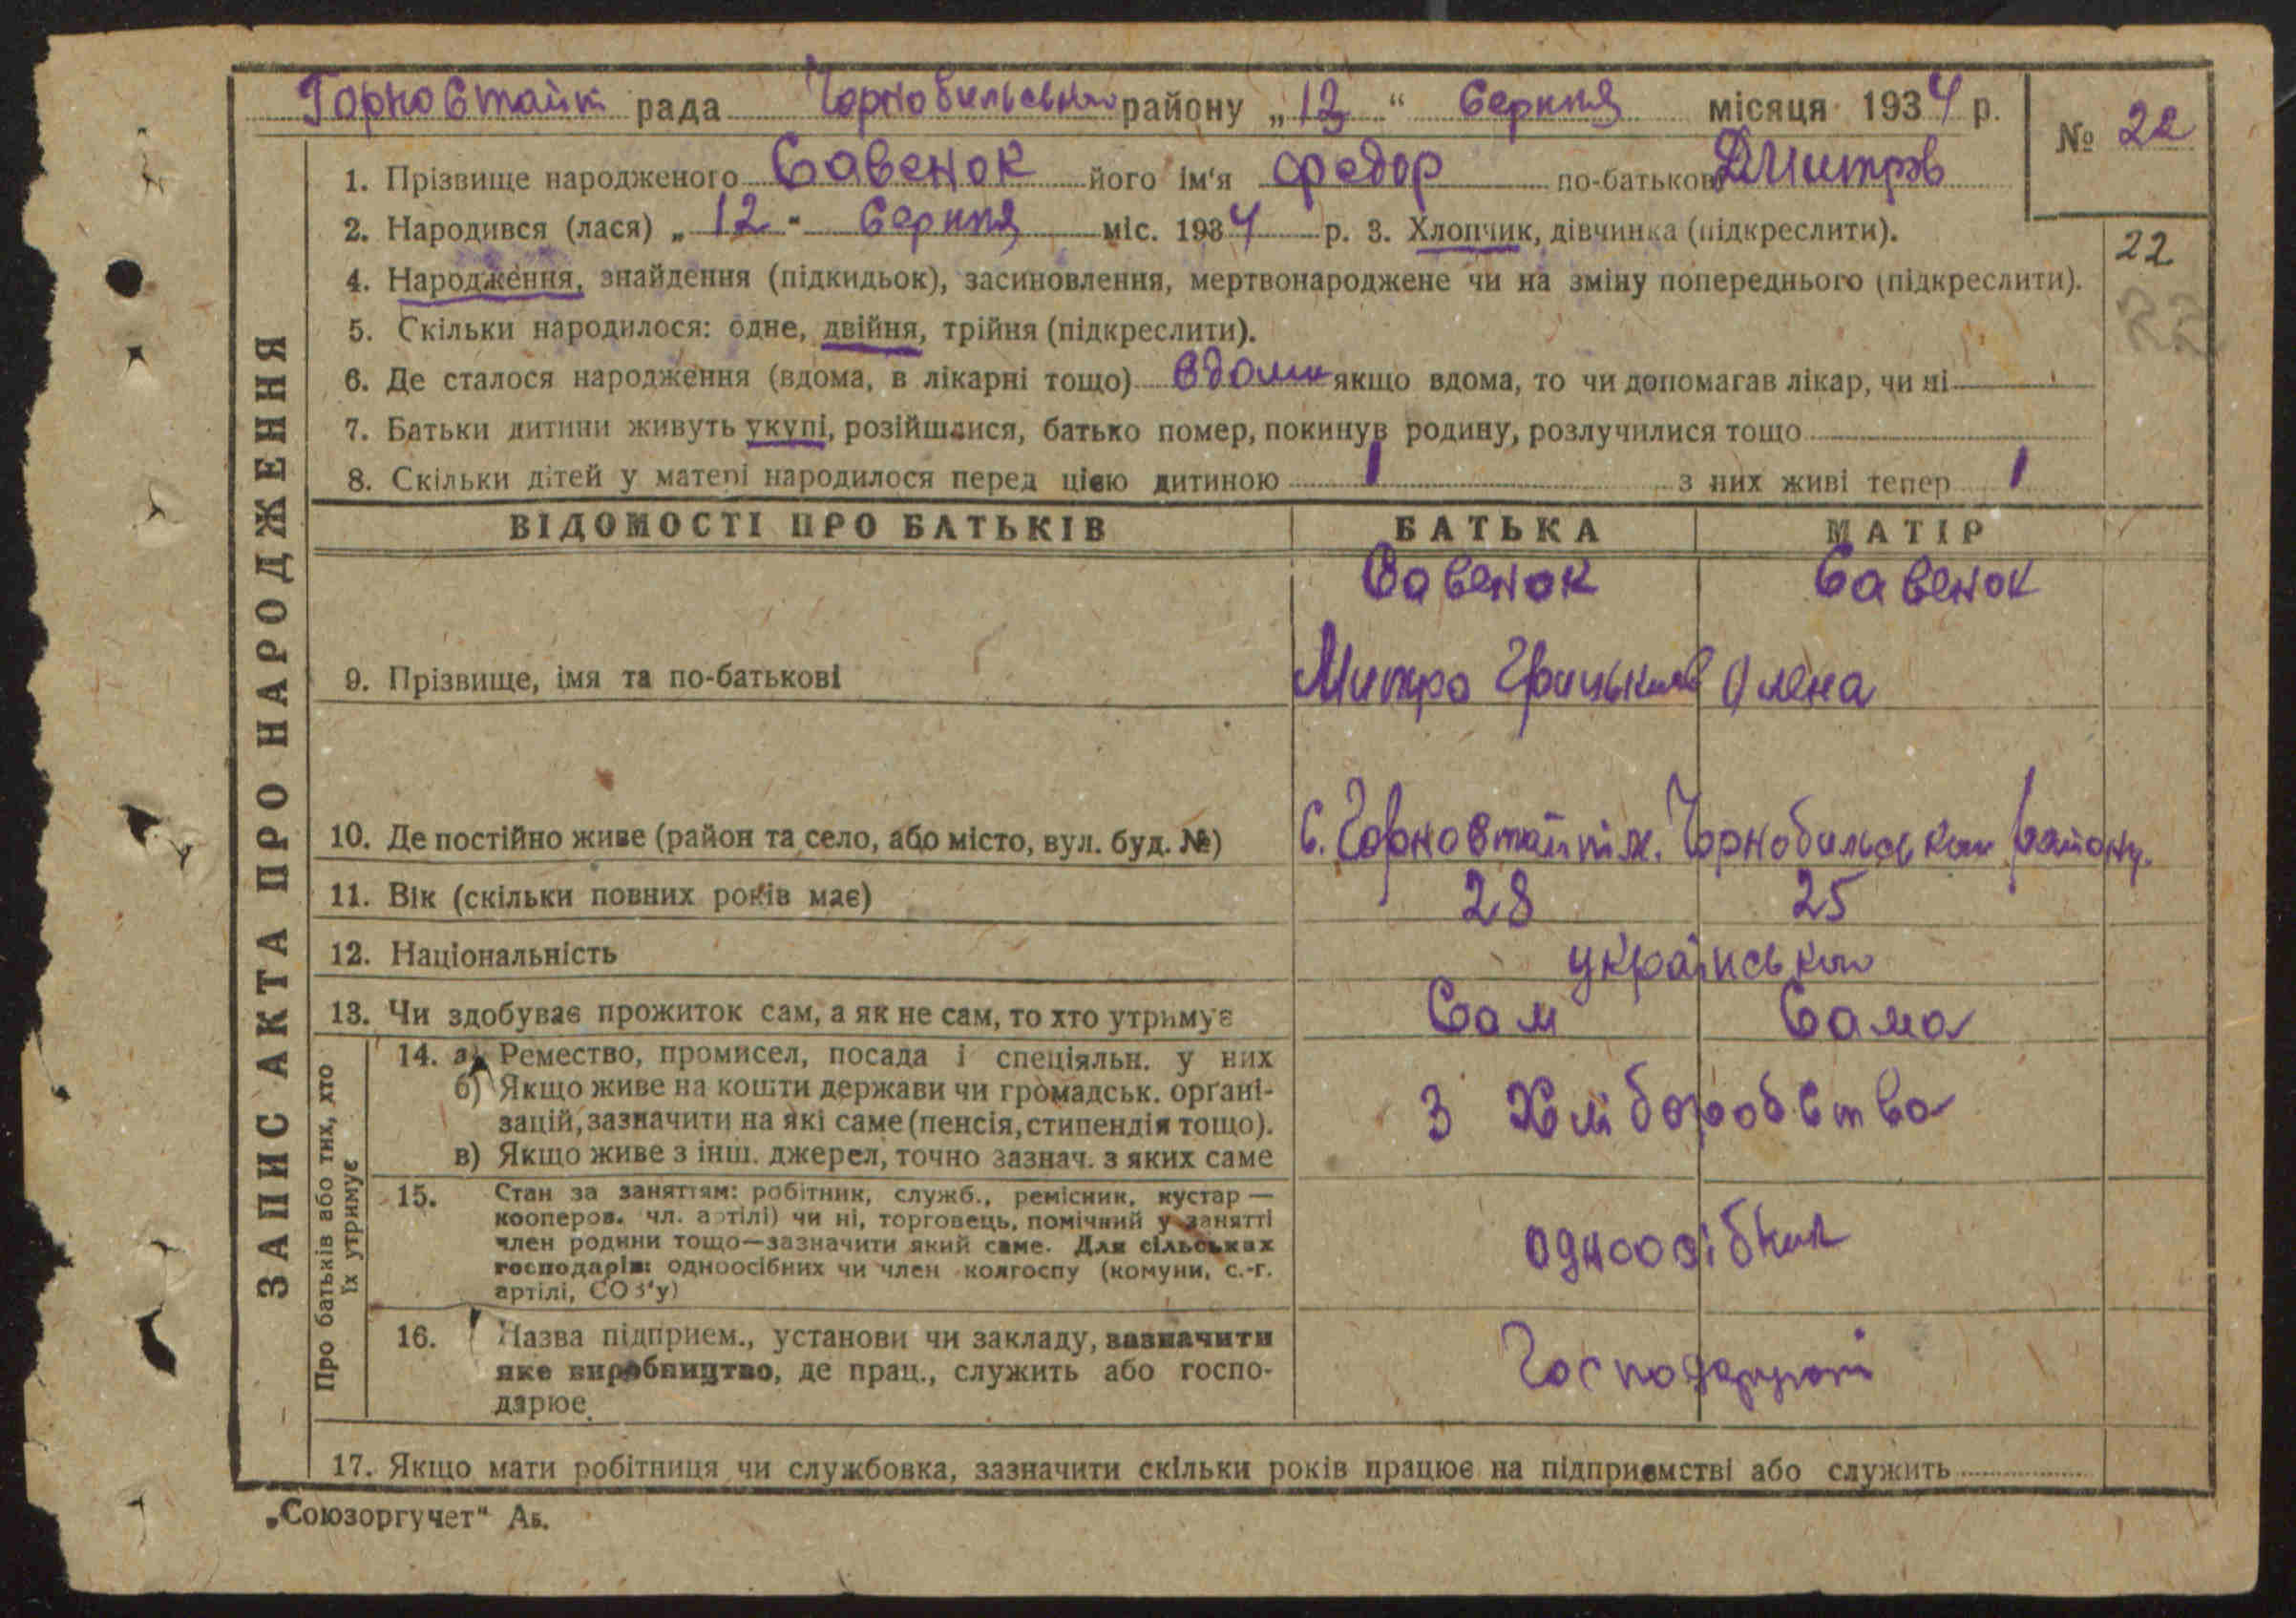 Горностайп рада Чорнобильського району „ 12 “ Серпня місяця 1934 р.
№ 22
1. Прізвище народженого Савенок його ім'я Федор по-батькові Дмитров
2. Народився (лася) „ 12 “ Серпня міс. 1934 р. 3. Хлопчик, дівчинка (підкреслити).
22
4. Народження, знайдення (підкидьок), засиновлення, мертвонароджене чи на зміну попереднього (підкреслити).
22
5. Скільки народилося: одне, двійня, трійня (підкреслити).
6. Де сталося народження (вдома, в лікарні тощо) вдома якщо вдома, то чи допомагав лікар, чи ні
7. Батьки дитини живуть укупі, розійшлися, батько помер, покинув родину, розлучилися тощо
8. Скільки дітей у матері народилося перед цією дитиною 1 з них живі тепер 1
ЗАПИС АКТА ПРО НАРОДЖЕННЯ
ВІДОМОСТІ ПРО БАТЬКІВ БАТЬКА МАТІР
Савенок Савенок
9. Прізвище, імя та по-батькові Митро Грицьків Олена
10. Де постійно живе (район та село, або місто, вул. буд. №) С. Горностайпіл. Чорнобильськ району.
11. Вік (скільки повних років має) 28 25
12. Національність українська
13. Чи здобуває прожиток сам, а як не сам, то хто утримує Сам Сама
Про батьків або тих, хто їх утримує
14. а) Ремество, промисел, посада і спеціяльн. у них
б) Якщо живе на кошти держави чи громадськ. орґані-
зацій, зазначити на які саме (пенсія, стипендія тощо). З Хліборобства
в) Якщо живе з інш. джерел, точно зазнач. з яких саме
15. Стан за заняттям: робітник, служб., ремісник, кустар —
кооперов. чл. артілі) чи ні, торговець, помічний у занятті
член родини тощо—зазначити який саме. Для сільських
господарів: одноосібних чи член колгоспу (комуни, с.-г.
артілі, СОЗ'у)
одноосібник
16. Назва підприєм., установи чи закладу, зазначити
яке виробництво, де прац., служить або госпо-
дарює
17. Якщо мати робітниця чи службовка, зазначити скільки років працює на підприємстві або служить
„Союзоргучет“ Ав.